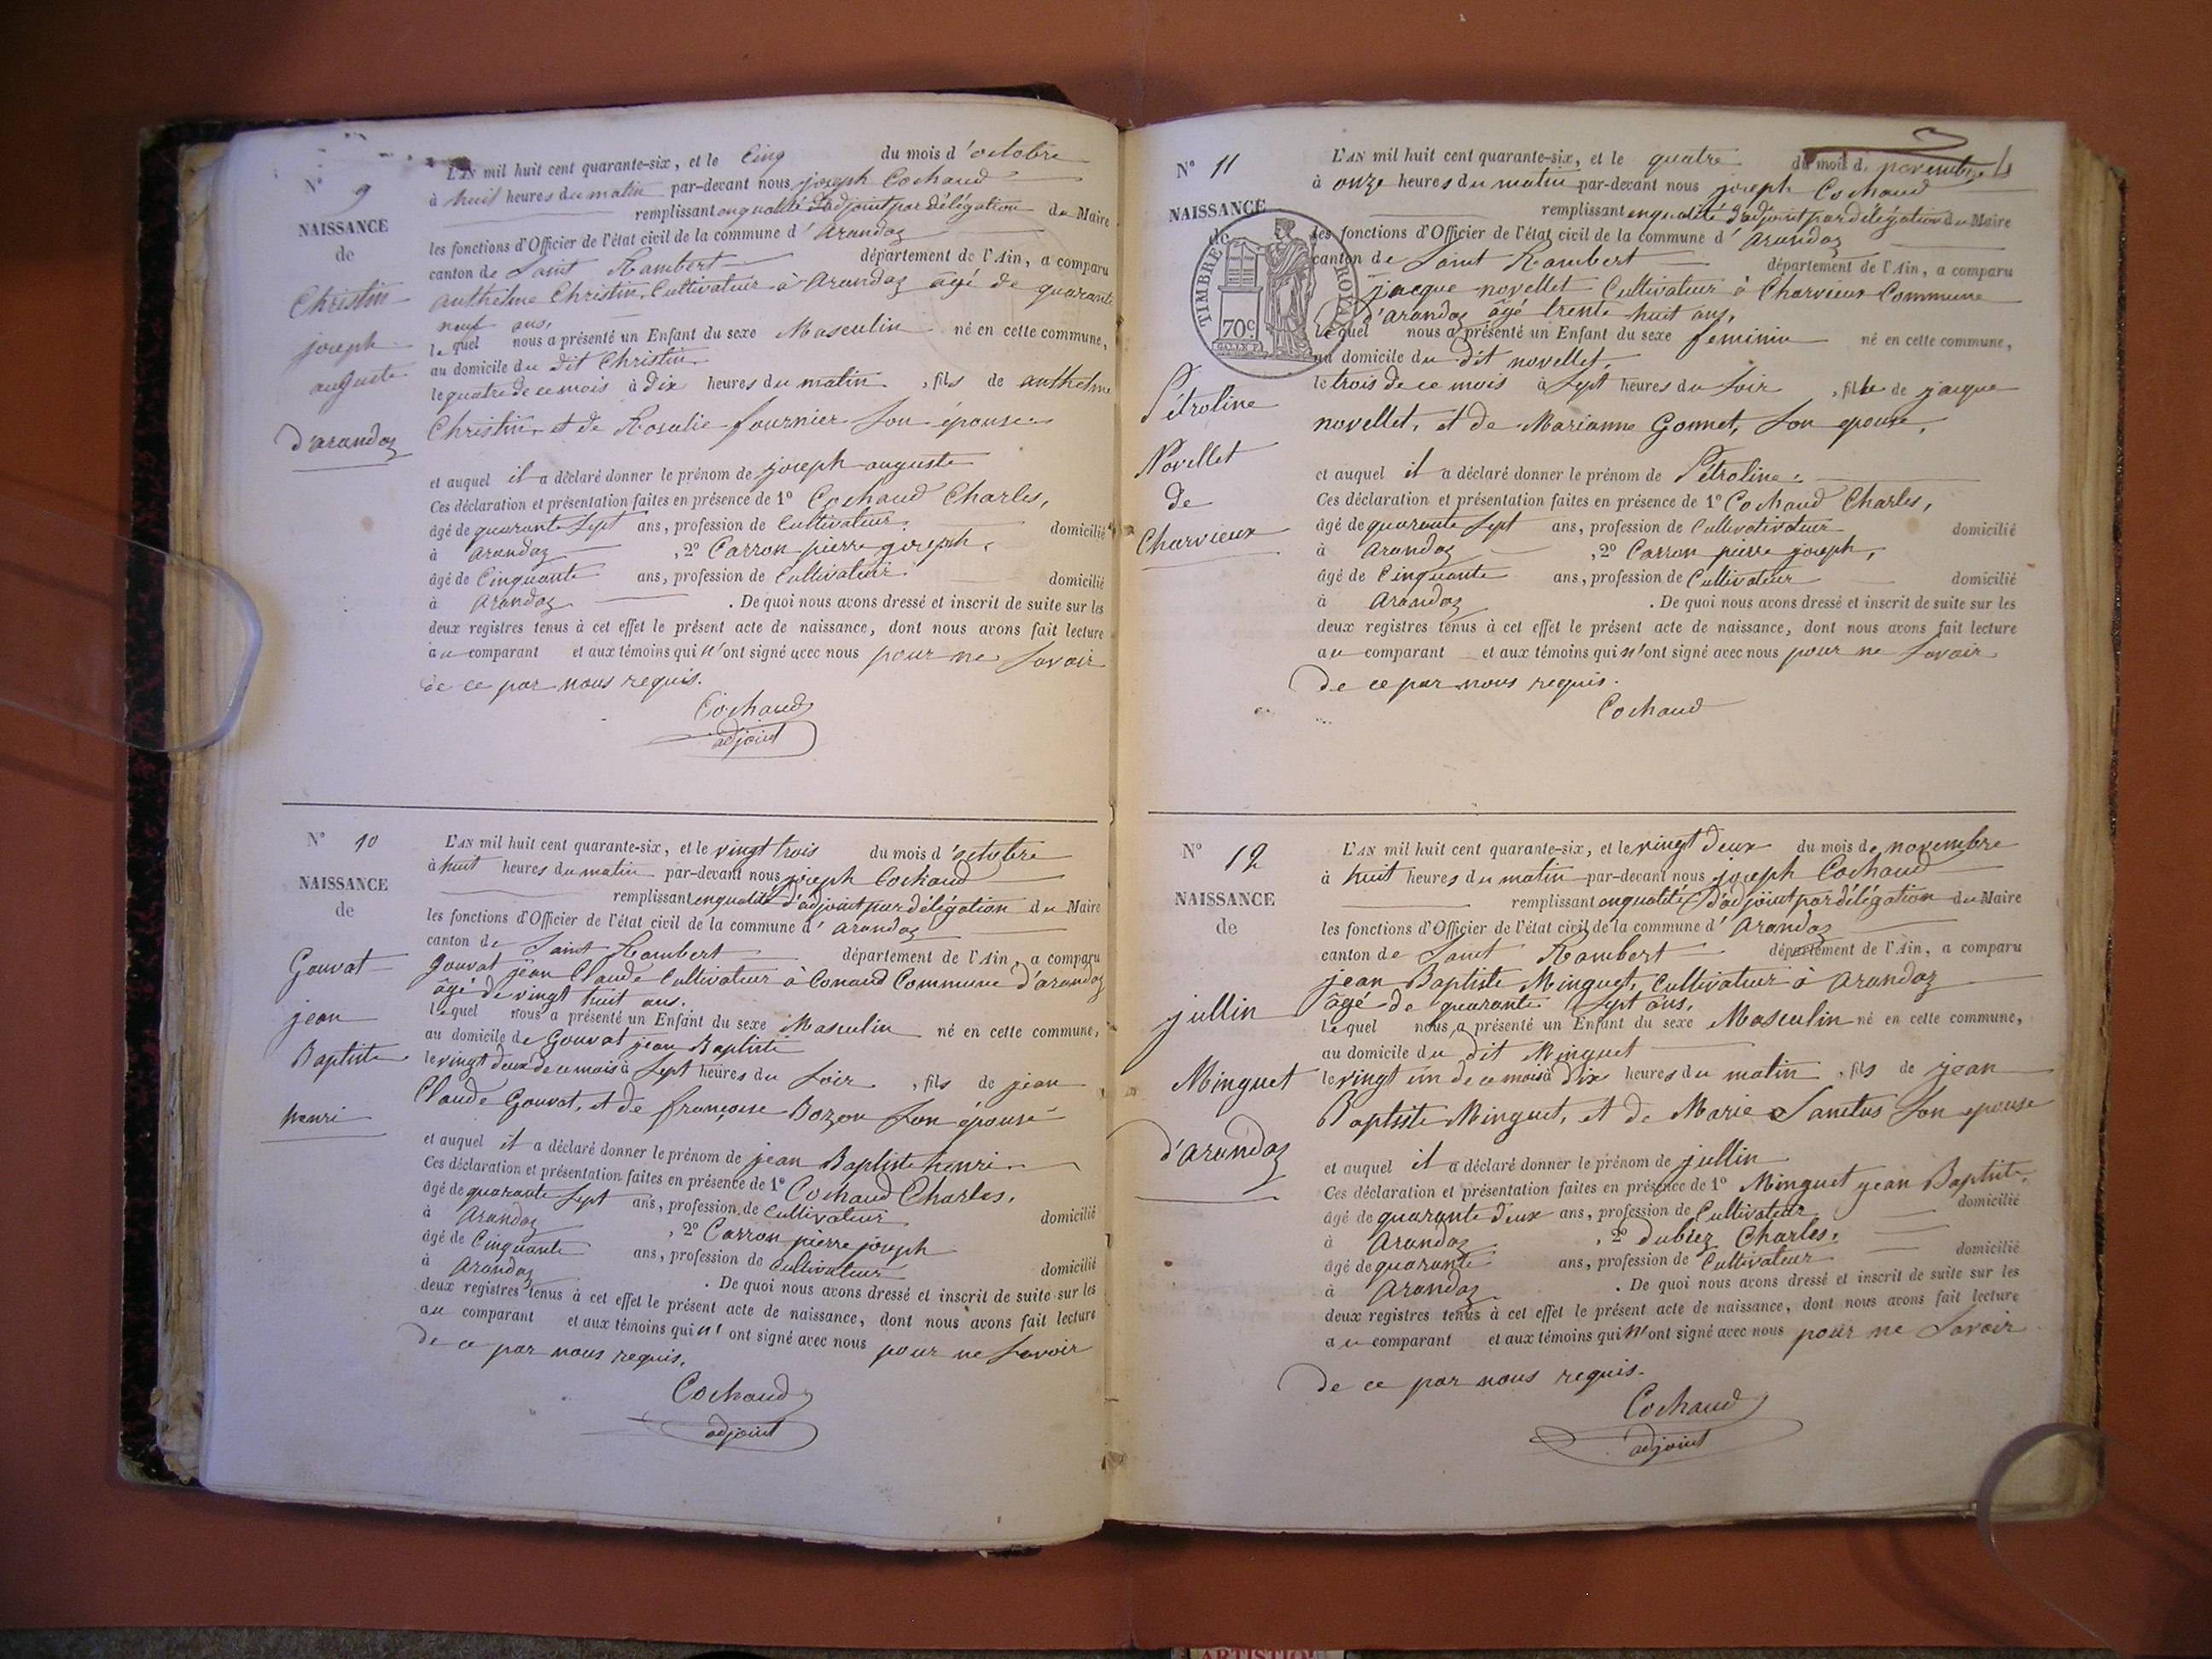 N° 9
NAISSANCE
de
Christin
joseph
auguste
d'arandaz
L'AN mil huit cent quarante-six, et le Cinq du mois d'octobre
à huit heures du matin par-devant nous joseph Cochaud
remplissant en qualité d'adjoint par délégation du Maire
les fonctions d'Officier de l'état civil de la commune d'Arandaz
canton de Saint Rambert département de l'Ain, a comparu
anthelme Christin, Cultivateur à Arandaz agé de quarante
neuf ans,
lequel nous a présenté un Enfant du sexe Masculin né en cette commune,
au domicile du dit Christin
le quatre de ce mois à dix heures du matin, fils de anthelme
Christin, et de Rosalie fournier Son épouse
et auquel il a déclaré donner le prénom de joseph auguste
Ces déclaration et présentation faites en présence de 1° Cochaud Charles,
âgé de quarante Sept ans, profession de Cultivateur. domicilié
à Arandaz, 2° Carron pierre joseph,
âgé de Cinquante ans, profession de Cultivateur. domicilié
à Arandaz. De quoi nous avons dressé et inscrit de suite sur les
deux registres tenus à cet effet le présent acte de naissance, dont nous avons fait lecture
au comparant et aux témoins qui n'ont signé avec nous pour ne Savoir
de ce par nous requis.
Cochaud
adjoint
N° 10
NAISSANCE
de
Gouvat
jean
Baptiste
henri
L'AN mil huit cent quarante-six, et le vingt trois du mois d'octobre
à huit heures du matin par-devant nous joseph Cochaud
remplissant en qualité d'adjoint par délégation du Maire
les fonctions d'Officier de l'état civil de la commune d'Arandaz
canton de Saint Rambert département de l'Ain, a comparu
Gouvat jean Claude Cultivateur à Conand Commune d'arandaz
âgé de vingt huit ans.
lequel nous a présenté un Enfant du sexe Masculin né en cette commune,
au domicile de Gouvat jean Baptiste
le vingt deux de ce mois à Sept heures du Soir, fils de jean
Claude Gouvat, et de françoise Bozon Son épouse
et auquel il a déclaré donner le prénom de jean Baptiste henri
Ces déclaration et présentation faites en présence de 1° Cochaud Charles,
âgé de quarante Sept ans, profession de Cultivateur domicilié
à Arandaz, 2° Carron pierre joseph
âgé de Cinquante ans, profession de Cultivateur domicilié
à Arandaz. De quoi nous avons dressé et inscrit de suite sur les
deux registres tenus à cet effet le présent acte de naissance, dont nous avons fait lecture
au comparant et aux témoins qui n'ont signé avec nous pour ne Savoir
de ce par nous requis.
Cochaud
adjoint
N° 11
NAISSANCE
de
Pétroline
Novellet
de
Charvieux
TIMBRE ROYAL
70c
L'AN mil huit cent quarante-six, et le quatre du mois de novembre
à onze heures du matin par-devant nous joseph Cochaud
remplissant en qualité d'adjoint par délégation du Maire
les fonctions d'Officier de l'état civil de la commune d'Arandaz
canton de Saint Rambert département de l'Ain, a comparu
jacque novellet Cultivateur à Charvieux Commune
d'arandaz âgé trente huit ans,
lequel nous a présenté un Enfant du sexe feminin né en cette commune,
au domicile du dit novellet,
le trois de ce mois à Sept heures du Soir, fille de jacque
novellet, et de Marianne Gonnet, Son epouse,
et auquel il a déclaré donner le prénom de Pétroline.
Ces déclaration et présentation faites en présence de 1° Cochaud Charles,
âgé de quarante Sept ans, profession de Cultivativateur domicilié
à Arandaz, 2° Carron pierre joseph,
âgé de Cinquante ans, profession de Cultivateur domicilié
à Arandaz. De quoi nous avons dressé et inscrit de suite sur les
deux registres tenus à cet effet le présent acte de naissance, dont nous avons fait lecture
au comparant et aux témoins qui n'ont signé avec nous pour ne Savoir
de ce par nous requis.
Cochaud
N° 12
NAISSANCE
de
jullin
Minguet
d'Arandaz
L'AN mil huit cent quarante-six, et le vingt deux du mois de novembre
à huit heures du matin par-devant nous joseph Cochaud
remplissant en qualité d'adjoint par délégation du Maire
les fonctions d'Officier de l'état civil de la commune d'Arandaz
canton de Saint Rambert département de l'Ain, a comparu
jean Baptiste Minguet, Cultivateur à Arandaz
âgé de quarante Sept ans,
lequel nous a présenté un Enfant du sexe Masculin né en cette commune,
au domicile du dit Minguet
le vingt un de ce mois à dix heures du matin, fils de jean
Baptiste Minguet, et de Marie Sanctus Son epouse
et auquel il a déclaré donner le prénom de jullin
Ces déclaration et présentation faites en présence de 1° Minguet jean Baptiste,
âgé de quarante deux ans, profession de Cultivateur domicilié
à Arandaz, 2° dubiez Charles,
âgé de quarante ans, profession de Cultivateur domicilié
à Arandaz. De quoi nous avons dressé et inscrit de suite sur les
deux registres tenus à cet effet le présent acte de naissance, dont nous avons fait lecture
au comparant et aux témoins qui n'ont signé avec nous pour ne Savoir
de ce par nous requis.
Cochaud
adjoint